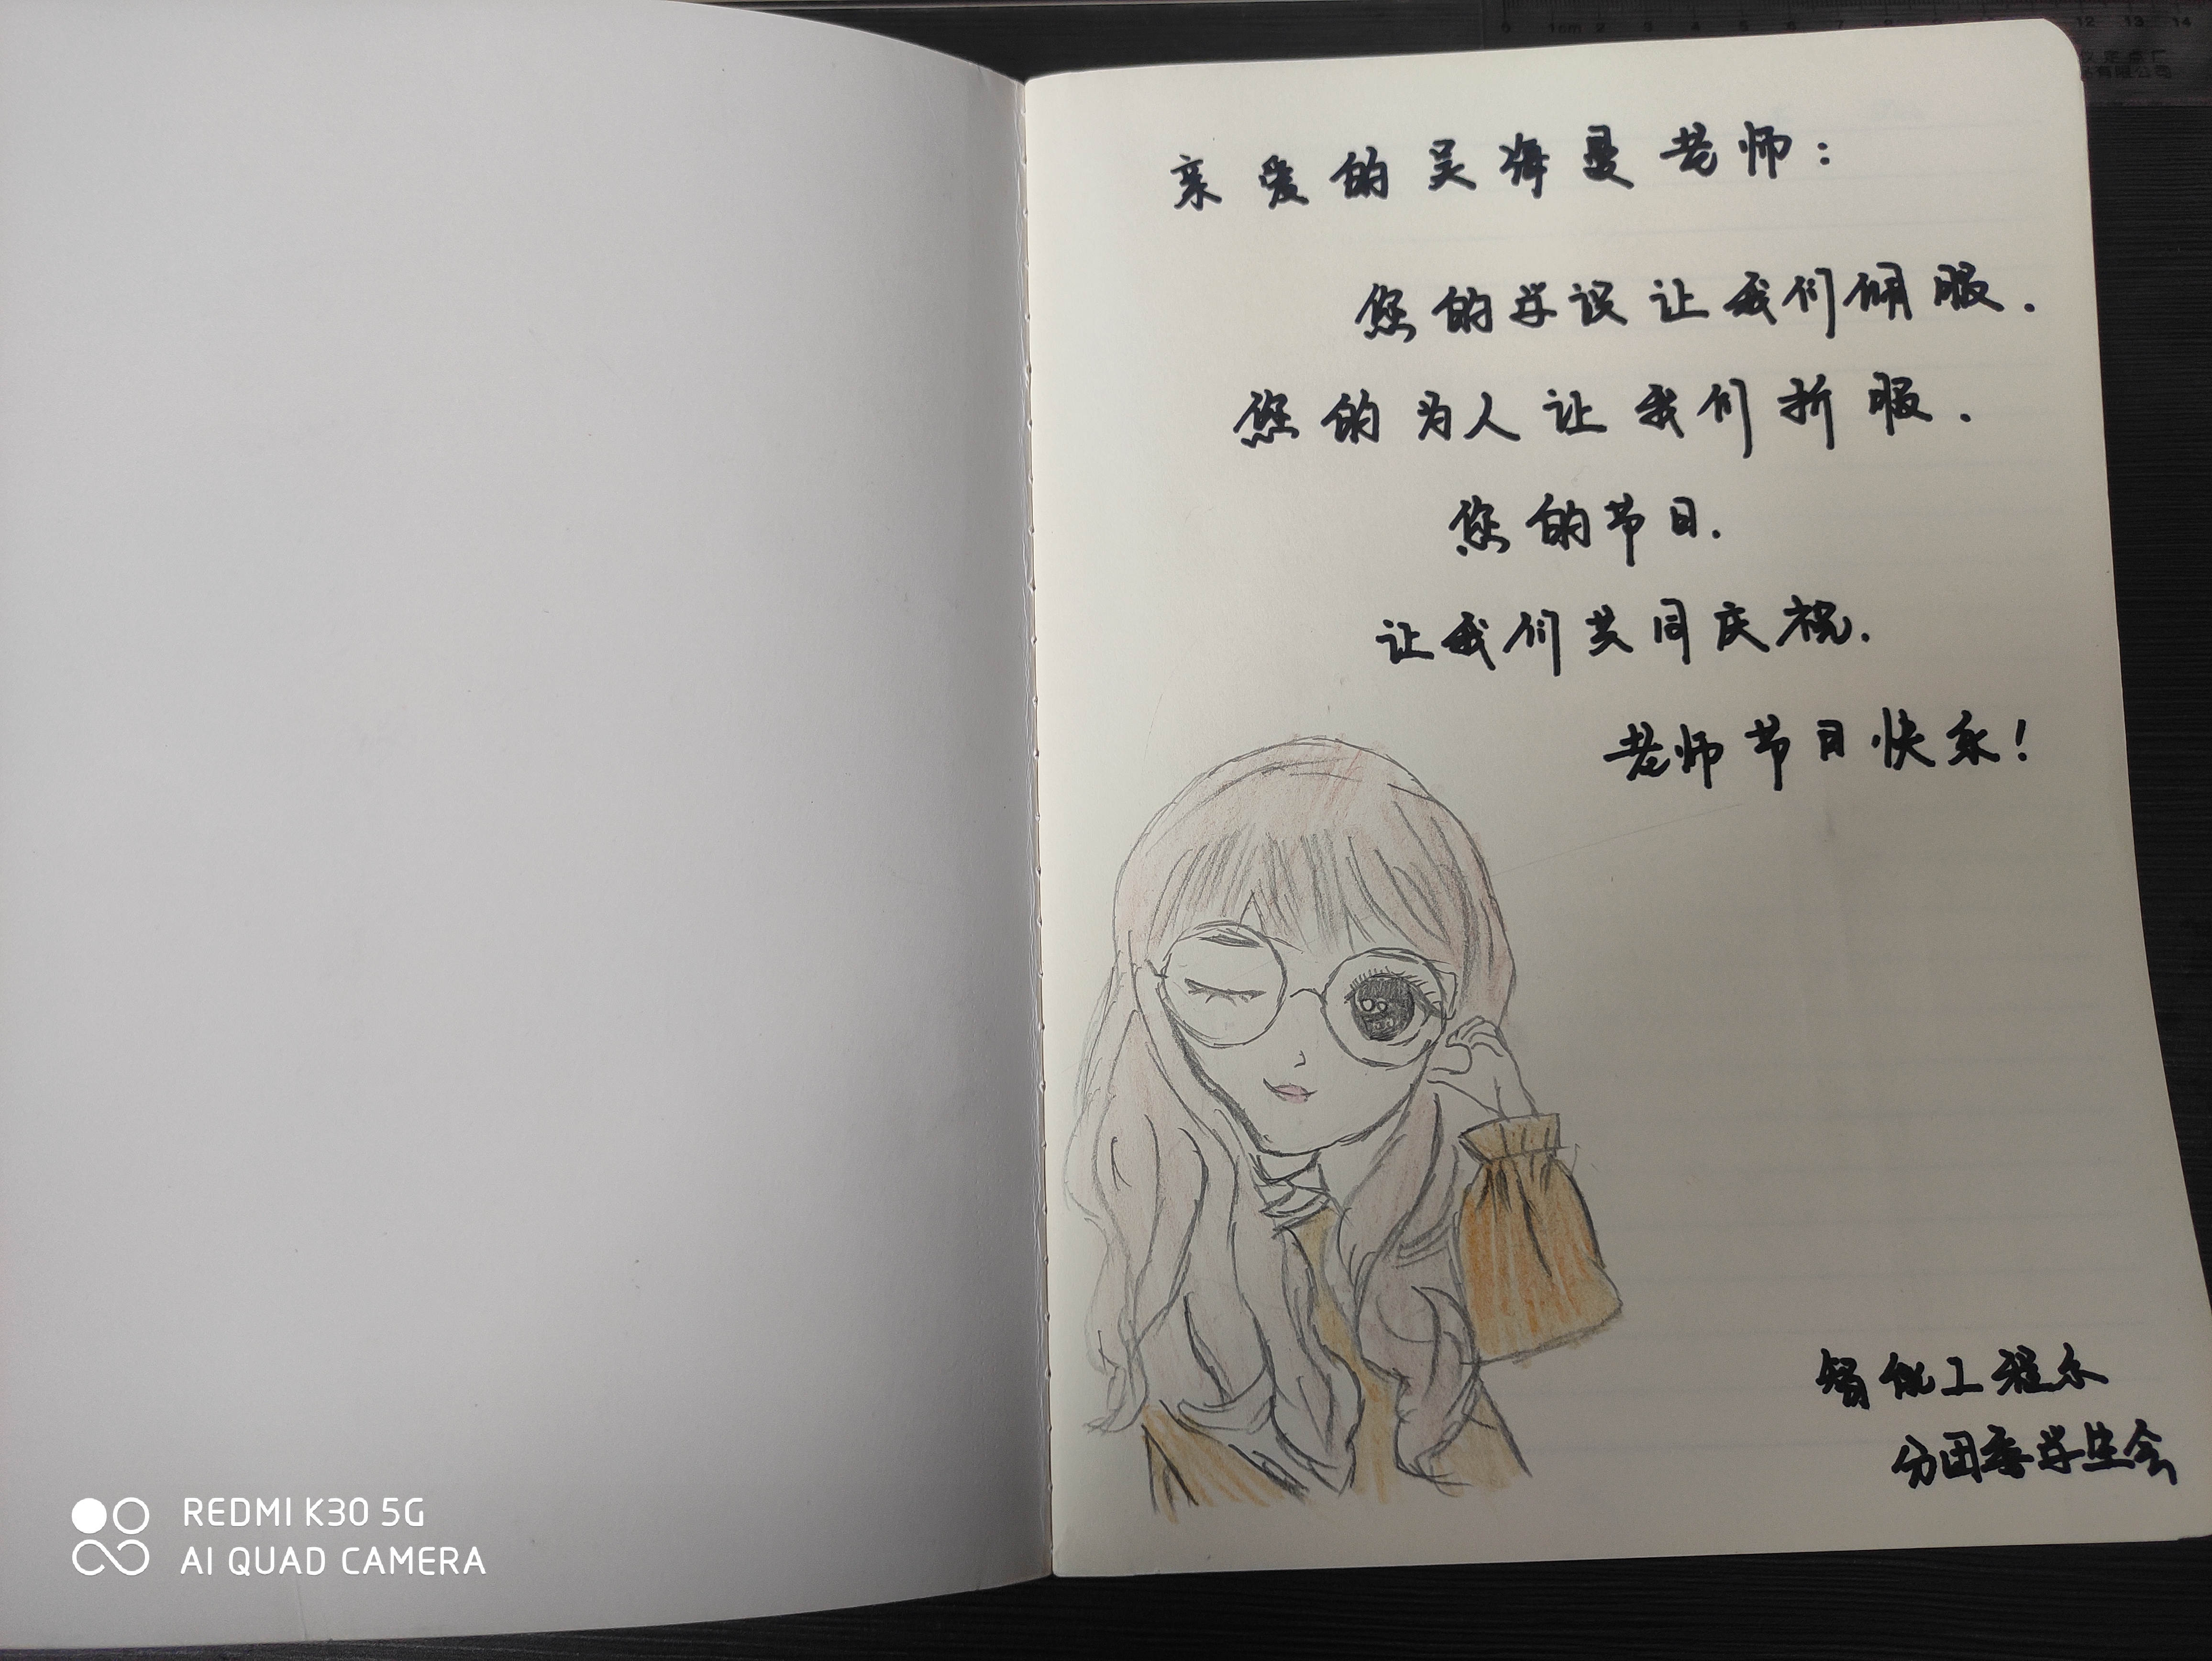 亲爱的吴海曼老师:
您的学识让我们倾服.
您的为人让我们折服.
您的节日.
让我们共同庆祝.
老师节日快乐!
智能工程系
分团委学生会
REDMI K30 5G
AI QUAD CAMERA